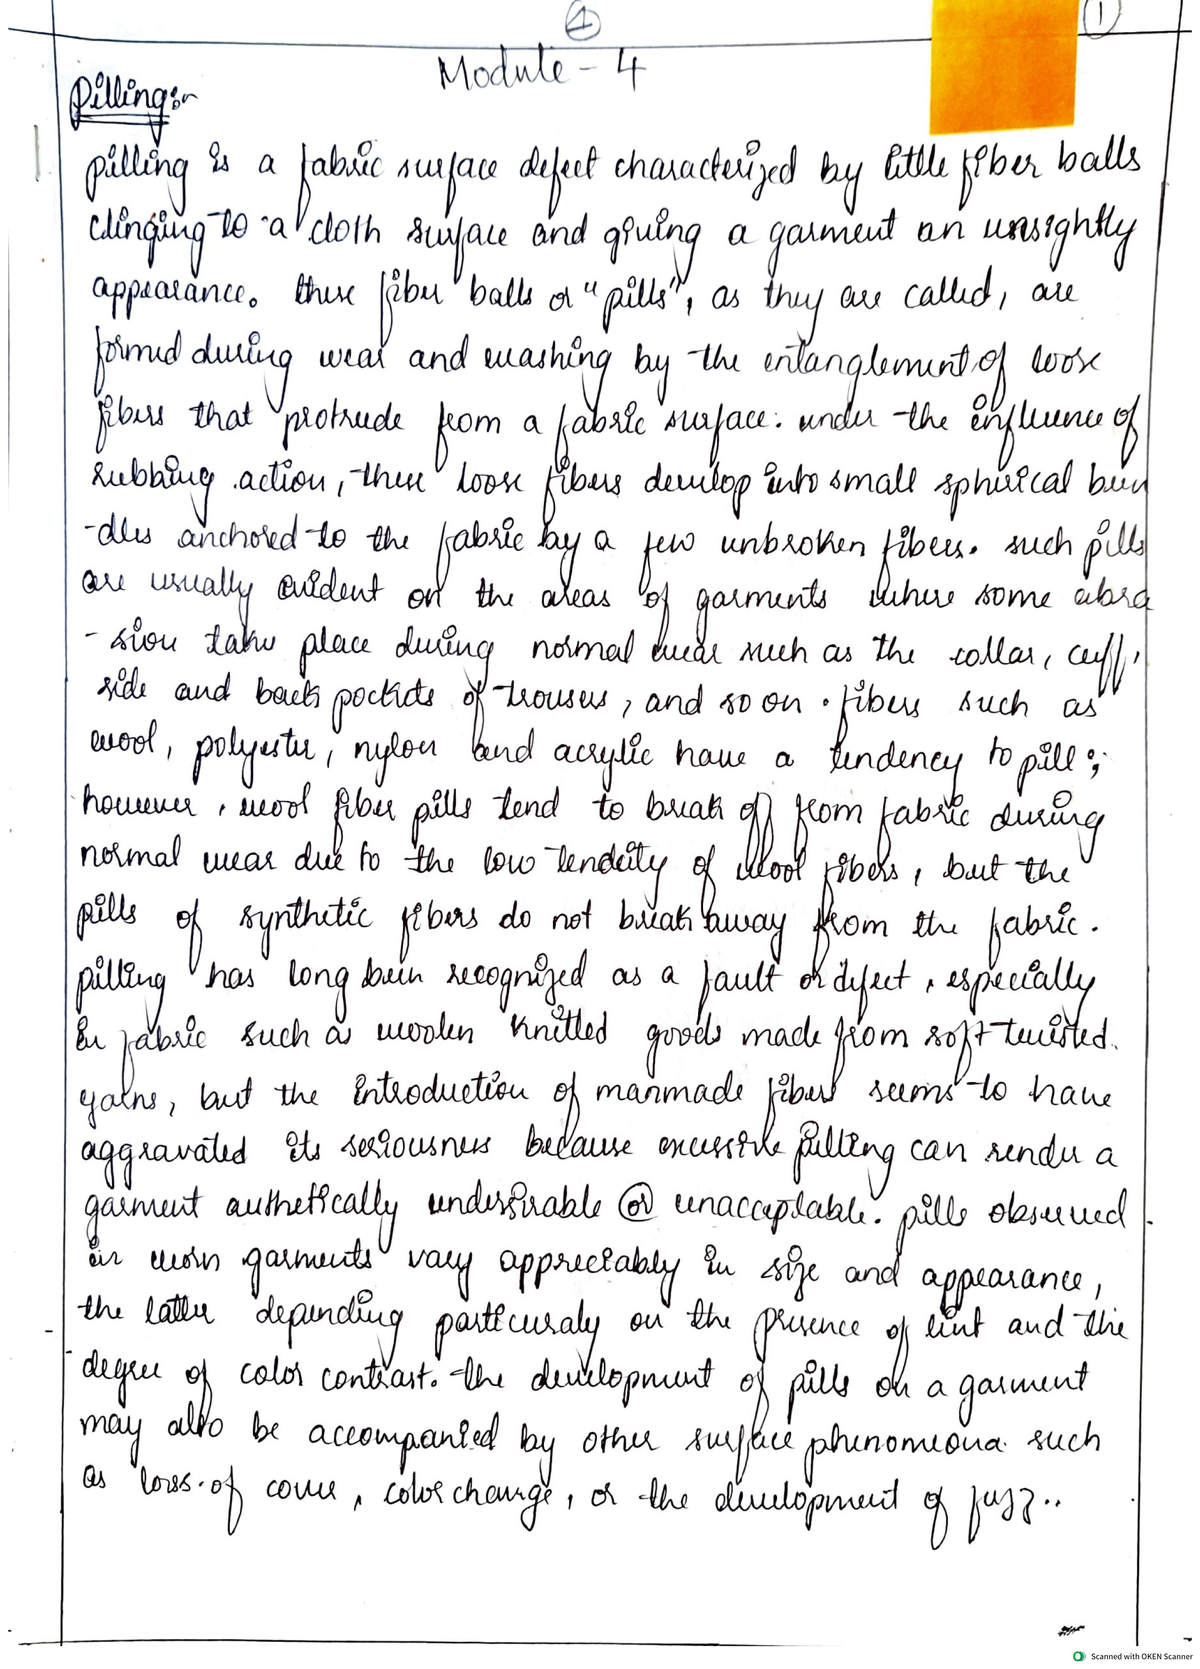 4
1
Module - 4
Pilling:-
pilling is a fabric surface defect characterized by little fiber balls
clinging to a cloth surface and giving a garment an unsightly
appearance. these fiber balls or "pills", as they are called, are
formed during wear and washing by the entanglement of loose
fibers that protrude from a fabric surface. under the influence of
rubbing action, these loose fibers develop into small spherical bun
-dles anchored to the fabric by a few unbroken fibers. such pills
are usually evident on the areas of garments where some abra
-sion take place during normal wear such as the collar, cuff,
side and back pockets of trousers, and so on. fibers such as
wool, polyester, nylon and acrylic have a tendency to pill;
however, wool fiber pills tend to break off from fabric during
normal wear due to the low tendcity of wool fibers, but the
pills of synthetic fibers do not break away from the fabric.
pilling has long been recognized as a fault or defect, especially
in fabric such as woolen knitted goods made from soft twisted.
yarns, but the introduction of manmade fibers seems to have
aggravated its seriousness because excessive pilling can render a
garment authetically undersirable or unacceptable. pills observed
in worn garments vary appreciably in size and appearance,
the latter depending particuraly on the presence of lint and the
degree of color contrast. the development of pills on a garment
may also be accompanied by other surface phenomeona such
as loss of cover, color change, or the development of fuzz..
Scanned with OKEN Scanner